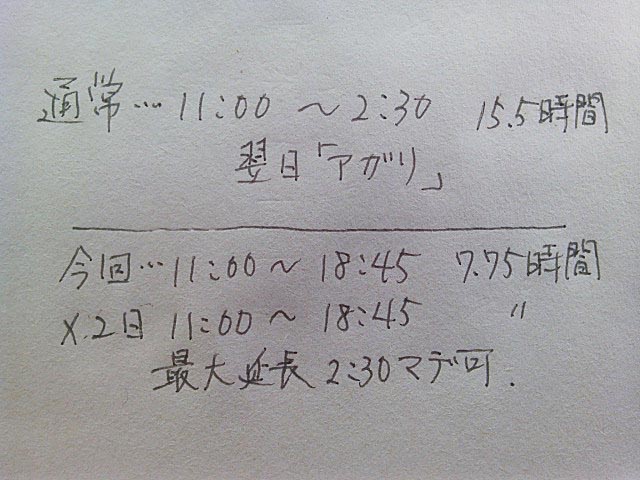 通常… 11:00 ～ 2:30 15.5時間
翌日「アガリ」
今回… 11:00 ～ 18:45 7.75時間
X.2日 11:00 ～ 18:45 〃
最大延長 2:30マデ可.